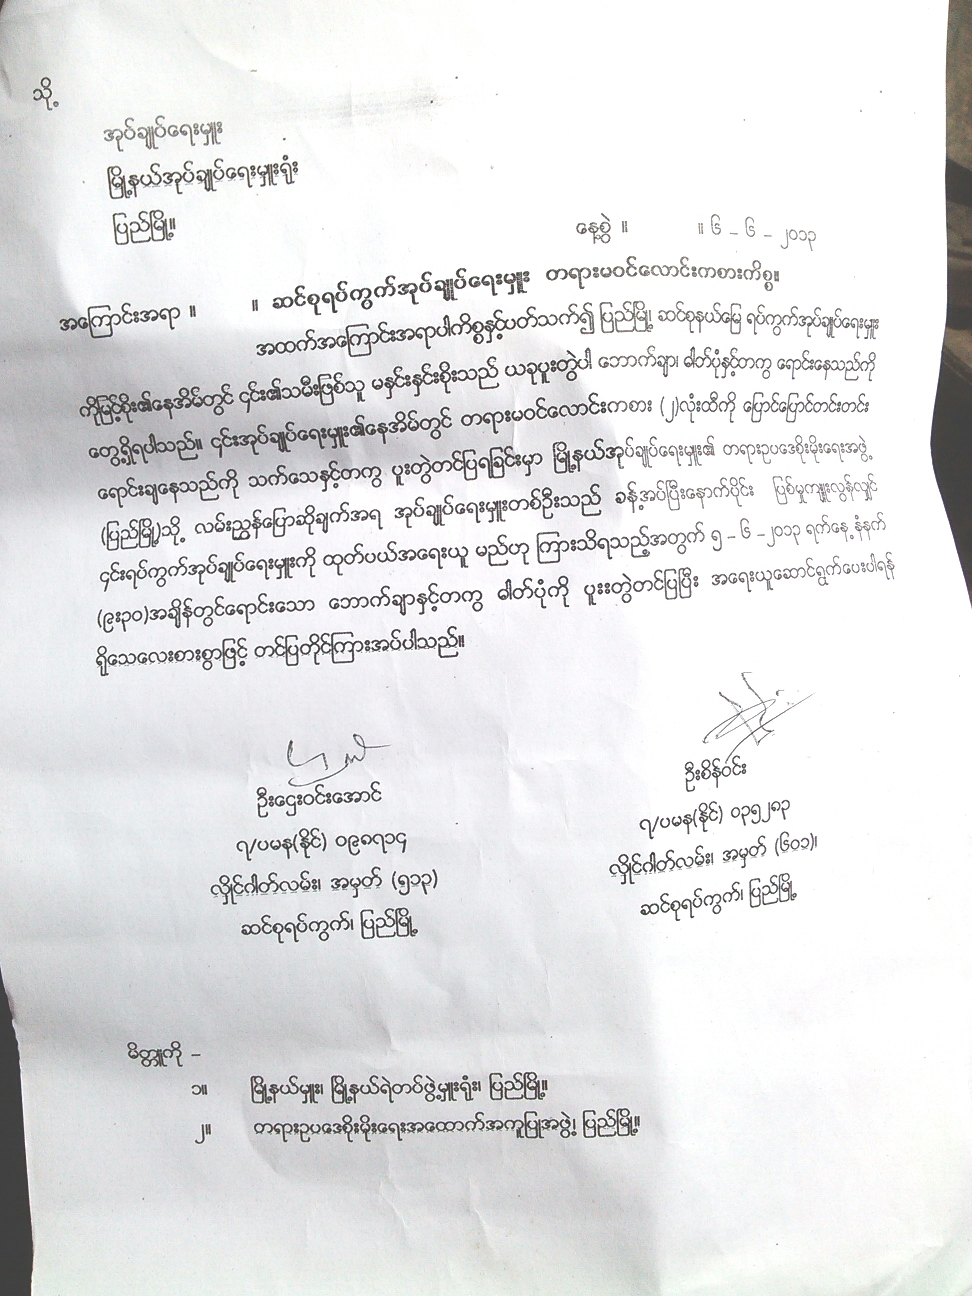 သို့
အုပ်ချုပ်ရေးမှူး
မြို့နယ်အုပ်ချုပ်ရေးမှူးရုံး
ပြည်မြို့။
နေ့စွဲ ။ ။ ၆ - ၆ - ၂၀၁၃
အကြောင်းအရာ ။ ။ ဆင်စုရပ်ကွက်အုပ်ချုပ်ရေးမှူး တရားမဝင်လောင်းကစားကိစ္စ။
အထက်အကြောင်းအရာပါကိစ္စနှင့်ပတ်သက်၍ ပြည်မြို့၊ ဆင်စုနယ်မြေ ရပ်ကွက်အုပ်ချုပ်ရေးမှူး
ကိုမြင့်စိုး၏နေအိမ်တွင် ၎င်း၏သမီးဖြစ်သူ မနှင်းနှင်းစိုးသည် ယခုပူးတွဲပါ ဘောက်ချာ၊ ဓါတ်ပုံနှင့်တကွ ရောင်းနေသည်ကို
တွေ့ရှိရပါသည်။ ၎င်းအုပ်ချုပ်ရေးမှူး၏နေအိမ်တွင် တရားမဝင်လောင်းကစား (၂)လုံးထီကို ပြောင်ပြောင်တင်းတင်း
ရောင်းချနေသည်ကို သက်သေနှင့်တကွ ပူးတွဲတင်ပြရခြင်းမှာ မြို့နယ်အုပ်ချုပ်ရေးမှူး၏ တရားဥပဒေစိုးမိုးရေးအဖွဲ့
(ပြည်မြို့)သို့ လမ်းညွှန်ပြောဆိုချက်အရ အုပ်ချုပ်ရေးမှူးတစ်ဦးသည် ခန့်အပ်ပြီးနောက်ပိုင်း ပြစ်မှုကျူးလွန်လျှင်
၎င်းရပ်ကွက်အုပ်ချုပ်ရေးမှူးကို ထုတ်ပယ်အရေးယူ မည်ဟု ကြားသိရသည့်အတွက် ၅ - ၆ -၂၀၁၃ ရက်နေ့ နံနက်
(၉း၃၀)အချိန်တွင်ရောင်းသော ဘောက်ချာနှင့်တကွ ဓါတ်ပုံကို ပူးးတွဲတင်ပြပြီး အရေးယူဆောင်ရွက်ပေးပါရန်
ရိုသေလေးစားစွာဖြင့် တင်ပြတိုင်ကြားအပ်ပါသည်။
ဦးစိန်ဝင်း
ဦးဌေးဝင်းအောင်
၇/ပမန(နိုင်) ၀၃၅၂၈၃
၇/ပမန(နိုင်) ၀၉၈၇၁၄
လှိုင်ဂါတ်လမ်း၊ အမှတ် (၆၀၁)၊
လှိုင်ဂါတ်လမ်း၊ အမှတ် (၅၁၃)
ဆင်စုရပ်ကွက်၊ ပြည်မြို့
ဆင်စုရပ်ကွက်၊ ပြည်မြို့
မိတ္တူကို -
၁။ မြို့နယ်မှူး၊ မြို့နယ်ရဲတပ်ဖွဲ့မှူးရုံး၊ ပြည်မြို့။
၂။ တရားဥပဒေစိုးမိုးရေးအထောက်အကူပြုအဖွဲ့၊ ပြည်မြို့။